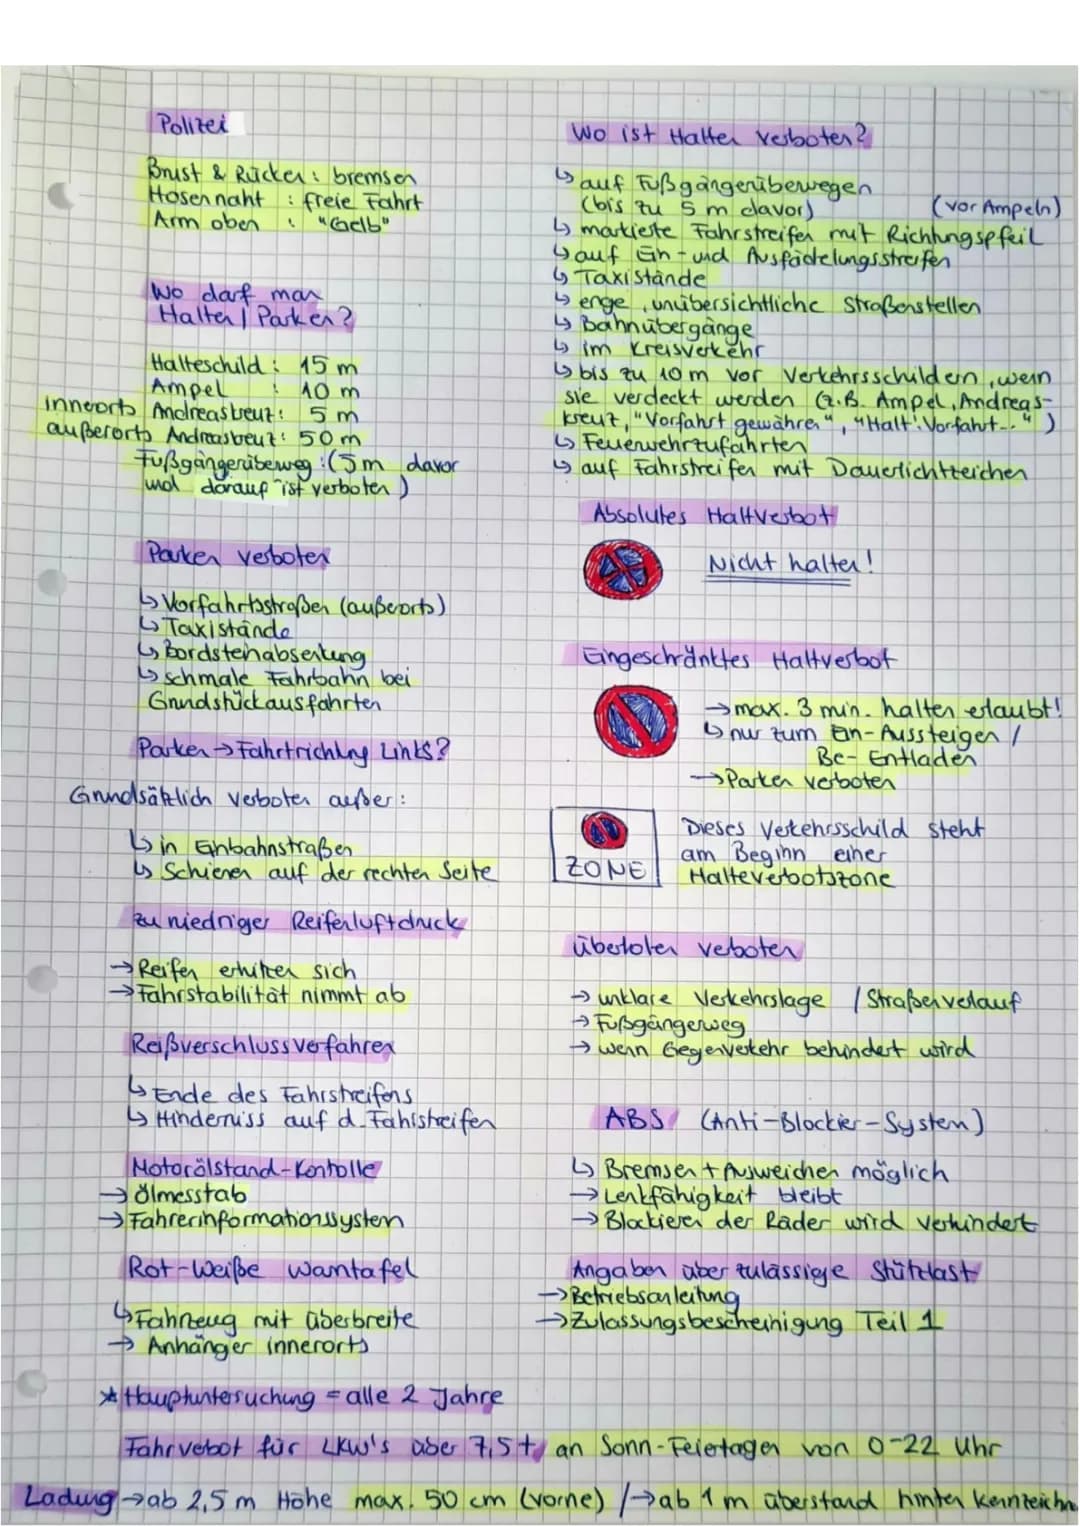 Polizei
Brust & Rücken: bremsen
Hosennaht : freie Fahrt
Arm oben : "Gelb"
Wo darf man
Halten / Parken?
Halteschild: 15 m
Ampel : 10 m
innerorts Andreaskreuz: 5 m
außerorts Andreaskreuz: 50 m
Fußgängerüberweg: (5m davor
und darauf ist verboten)
Parken verboten
↳ Vorfahrtsstraßen (außerorts)
↳ Taxistände
↳ Bordsteinabsenkung
↳ schmale Fahrbahn bei
Grundstückausfahrten
Parken → Fahrtrichtung Links?
Grundsätzlich verboten außer:
↳ in Einbahnstraßen
↳ Schienen auf der rechten Seite
zu niedriger Reifenluftdruck
→ Reifen erhitzen sich
→ Fahrstabilität nimmt ab
Reißverschlussverfahren
↳ Ende des Fahrstreifens
↳ Hinderniss auf d. Fahrstreifen
Motorölstand-Kontolle
→ Ölmesstab
→ Fahrerinformationssystem
Rot-Weiße Warntafel
↳ Fahrzeug mit überbreite
→ Anhänger innerorts
* Hauptuntersuchung = alle 2 Jahre
Wo ist Halten verboten?
↳ auf Fußgängerüberwegen
(bis zu 5 m davor) (vor Ampeln)
↳ markierte Fahrstreifen mit Richtungspfeil
↳ auf Ein- und Ausfädelungsstreifen
↳ Taxistände
↳ enge, unübersichtliche Straßenstellen
↳ Bahnübergänge
↳ im Kreisverkehr
↳ bis zu 10 m vor Verkehrsschildern, wenn
sie verdeckt werden (z.B. Ampel, Andreas-
kreuz, "Vorfahrt gewähren", "Halt! Vorfahrt..")
↳ Feuerwehrzufahrten
↳ auf Fahrstreifen mit Dauerlichtzeichen
Absolutes Haltverbot
Nicht halten!
Eingeschränktes Haltverbot
→ max. 3 min. halten erlaubt!
↳ nur zum Ein-Aussteigen /
Be- Entladen
→ Parken verboten
ZONE
Dieses Verkehrsschild steht
am Beginn einer
Halteverbotszone
überholen verboten
→ unklare Verkehrslage / Straßenverlauf
→ Fußgängerweg
→ wenn Gegenverkehr behindert wird
ABS (Anti-Blockier-System)
↳ Bremsen + Ausweichen möglich
→ Lenkfähigkeit bleibt
→ Blockieren der Räder wird verhindert
Angaben über zulässige Stützlast
→ Betriebsanleitung
→ Zulassungsbescheinigung Teil 1
Fahrverbot für LKW's über 7,5t, an Sonn-Feiertagen von 0-22 Uhr
Ladung → ab 2,5 m Höhe max. 50 cm (vorne) / → ab 1 m überstand hinten